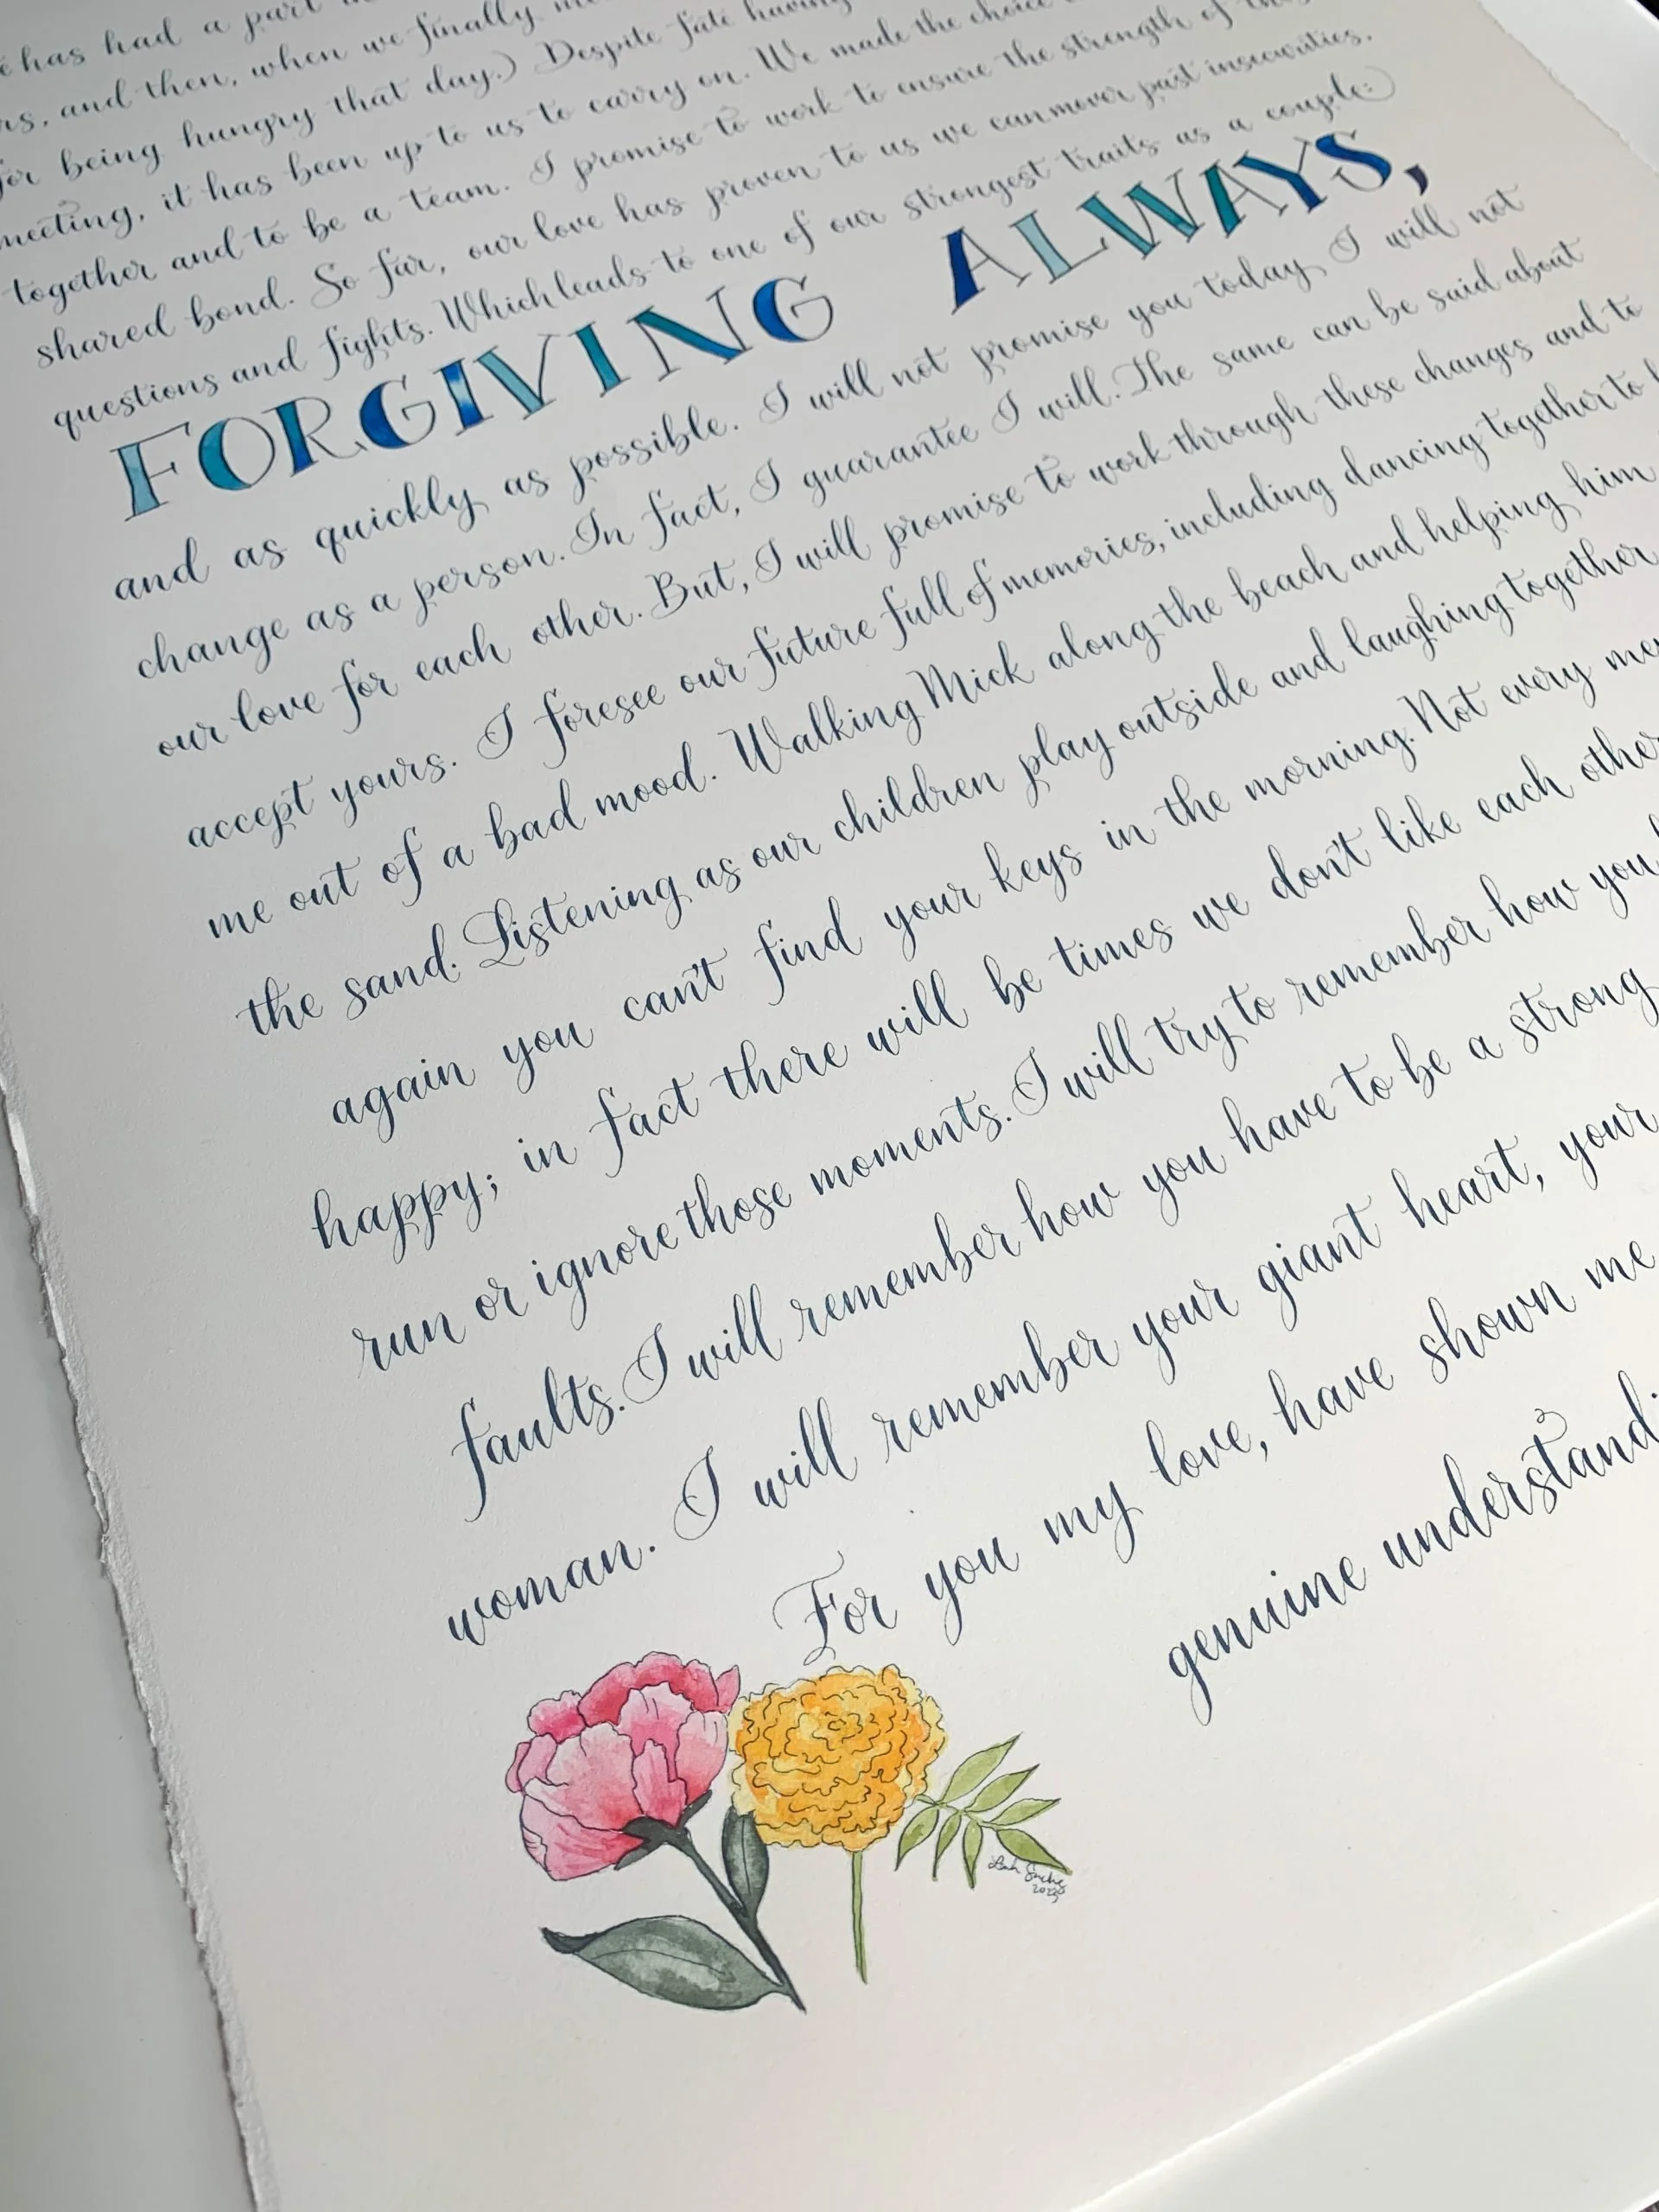 has had a part
and then, when we finally
for being hungry that day.) Despite fate having
meeting, it has been up to us to carry on. We made the choice
together and to be a team. I promise to work to ensure the strength of
shared bond. So far, our love has proven to us we can move past insecurities,
questions and fights. Which leads to one of our strongest traits as a couple:
FORGIVING ALWAYS,
and as quickly as possible. I will not promise you today I will not
change as a person. In fact, I guarantee I will. The same can be said about
our love for each other. But, I will promise to work through these changes and to
accept yours. I foresee our future full of memories, including dancing together to
me out of a bad mood. Walking Mick along the beach and helping him
the sand. Listening as our children play outside and laughing together
again you can't find your keys in the morning. Not every
happy; in fact there will be times we don't like each other
run or ignore those moments. I will try to remember how you
faults. I will remember how you have to be a strong
woman. I will remember your giant heart, your
For you my love, have shown me
genuine understandi